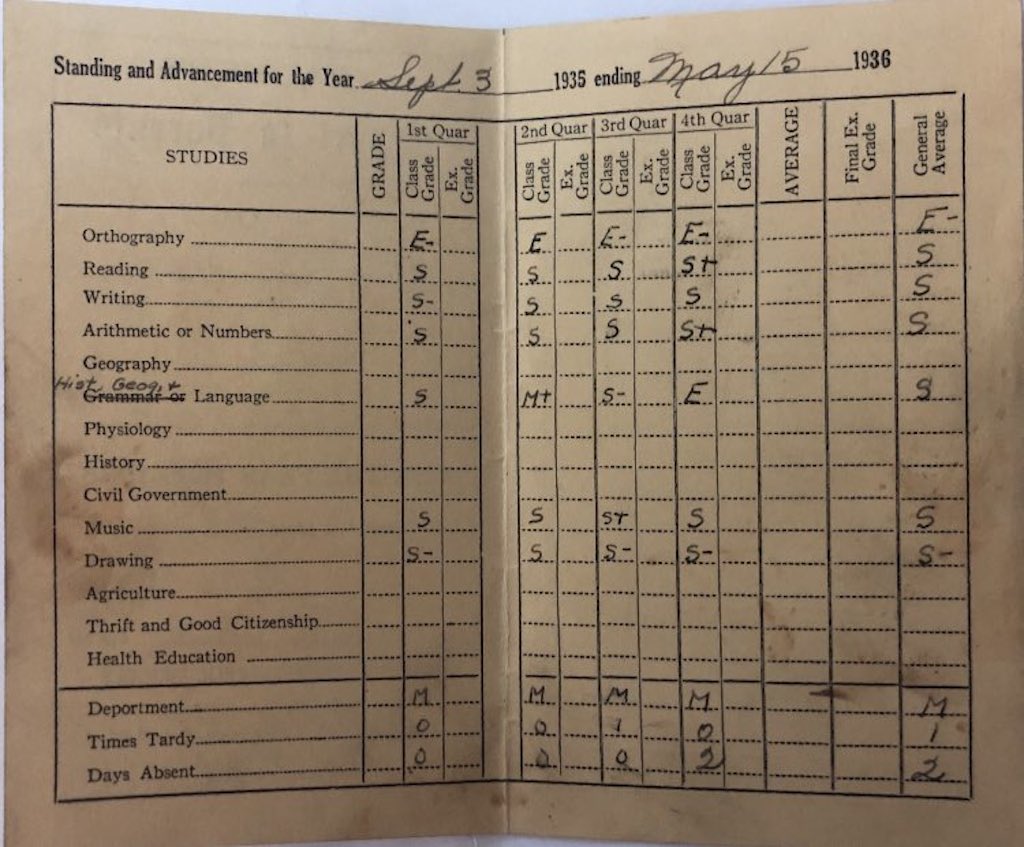 Standing and Advancement for the Year Sept. 3 1935 ending May 15 1936
STUDIES GRADE 1st Quar 2nd Quar 3rd Quar 4th Quar AVERAGE Final Ex. Grade General Average
Class Grade Ex. Grade Class Grade Ex. Grade Class Grade Ex. Grade Class Grade Ex. Grade
Orthography E- E E- E- E-
Reading S S S S+ S
Writing S- S S S S
Arithmetic or Numbers S S S S+ S
Geography
Hist, Geog, +
Grammar or Language S M+ S- E S
Physiology
History
Civil Government
Music S S S+ S S
Drawing S- S S- S- S-
Agriculture
Thrift and Good Citizenship
Health Education
Deportment M M M M M
Times Tardy 0 0 1 0 1
Days Absent 0 0 0 2 2